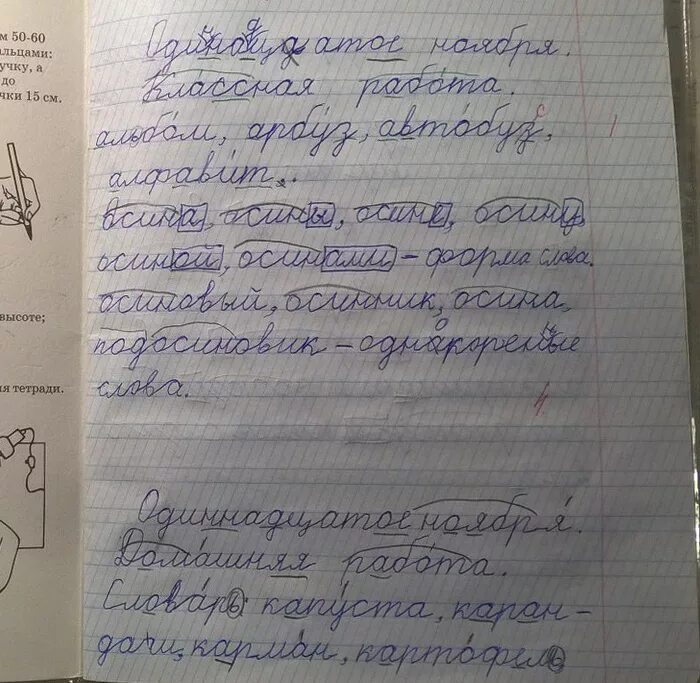 м 50-60
альцами:
учку, а
до
чки 15 см.
высоте;
ия тетради.
Одиннадцатое ноября.
Классная работа.
альбом, арбуз, автобус,
алфавит.
осина, осины, осине, осину,
осиной, осинами – форма слова.
осиновый, осинник, осина,
подосиновик – однокоренные
слова.
4
Одиннадцатое ноября.
Домашняя работа.
Словарь: капуста, каран-
даш, карман, картофель